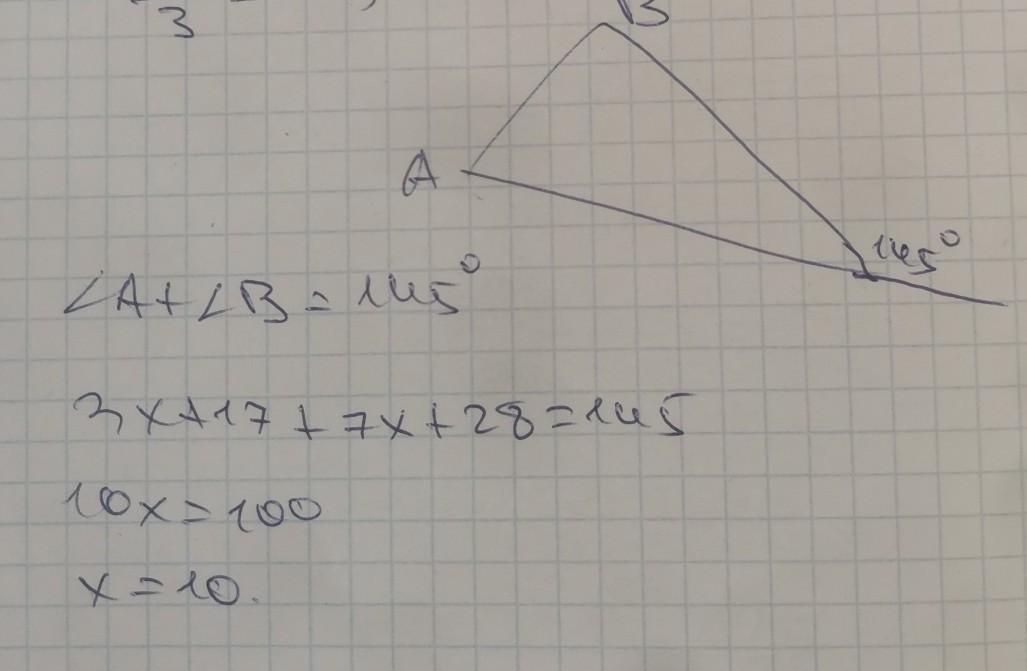 3
B
A
145°
∠A+∠B=145°
3x+17+7x+28=145
10x=100
x=10.